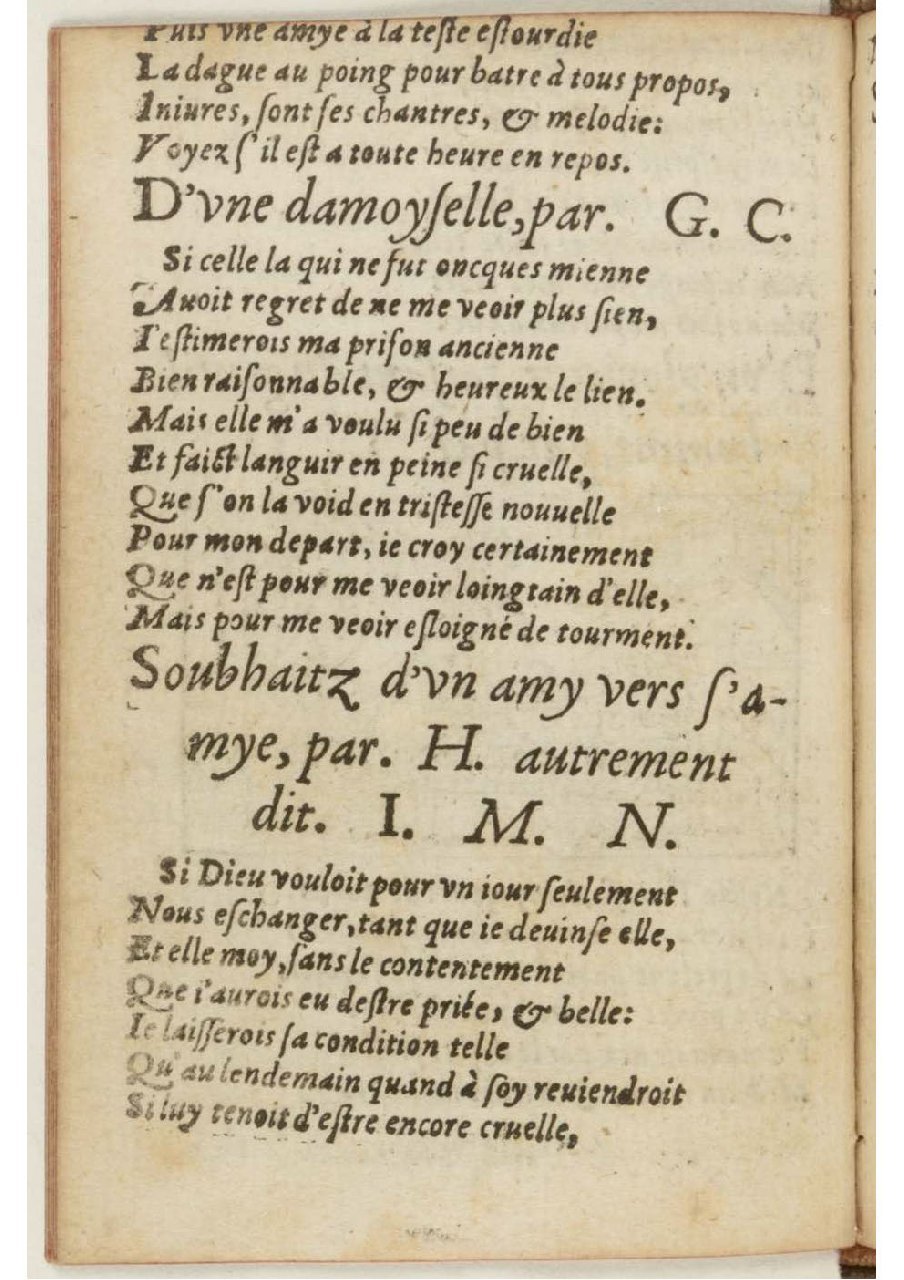 Puis vne amye à la teſte eſtourdie
La dague au poing pour batre à tous propos,
Iniures, ſont ſes chantres, & melodie:
Voyez ſ'il eſt a toute heure en repos.
D'vne damoyſelle, par. G. C.
Si celle la qui ne fut oncques mienne
Auoit regret de ne me veoir plus ſien,
I'eſtimerois ma priſon ancienne
Bien raiſonnable, & heureux le lien.
Mais elle m'a voulu ſi peu de bien
Et faict languir en peine ſi cruelle,
Que ſ'on la void en triſteſſe nouuelle
Pour mon depart, ie croy certainement
Que n'eſt pour me veoir loingtain d'elle,
Mais pour me veoir eſloigné de tourment.
Soubhaitz d'vn amy vers ſ'a-
mye, par. H. autrement
dit. I. M. N.
Si Dieu vouloit pour vn iour ſeulement
Nous eſchanger, tant que ie deuinſe elle,
Et elle moy, ſans le contentement
Que i'aurois eu deſtre priée, & belle:
Ie laiſſerois ſa condition telle
Qu'au lendemain quand à ſoy reuiendroit
Si luy tenoit d'eſtre encore cruelle,